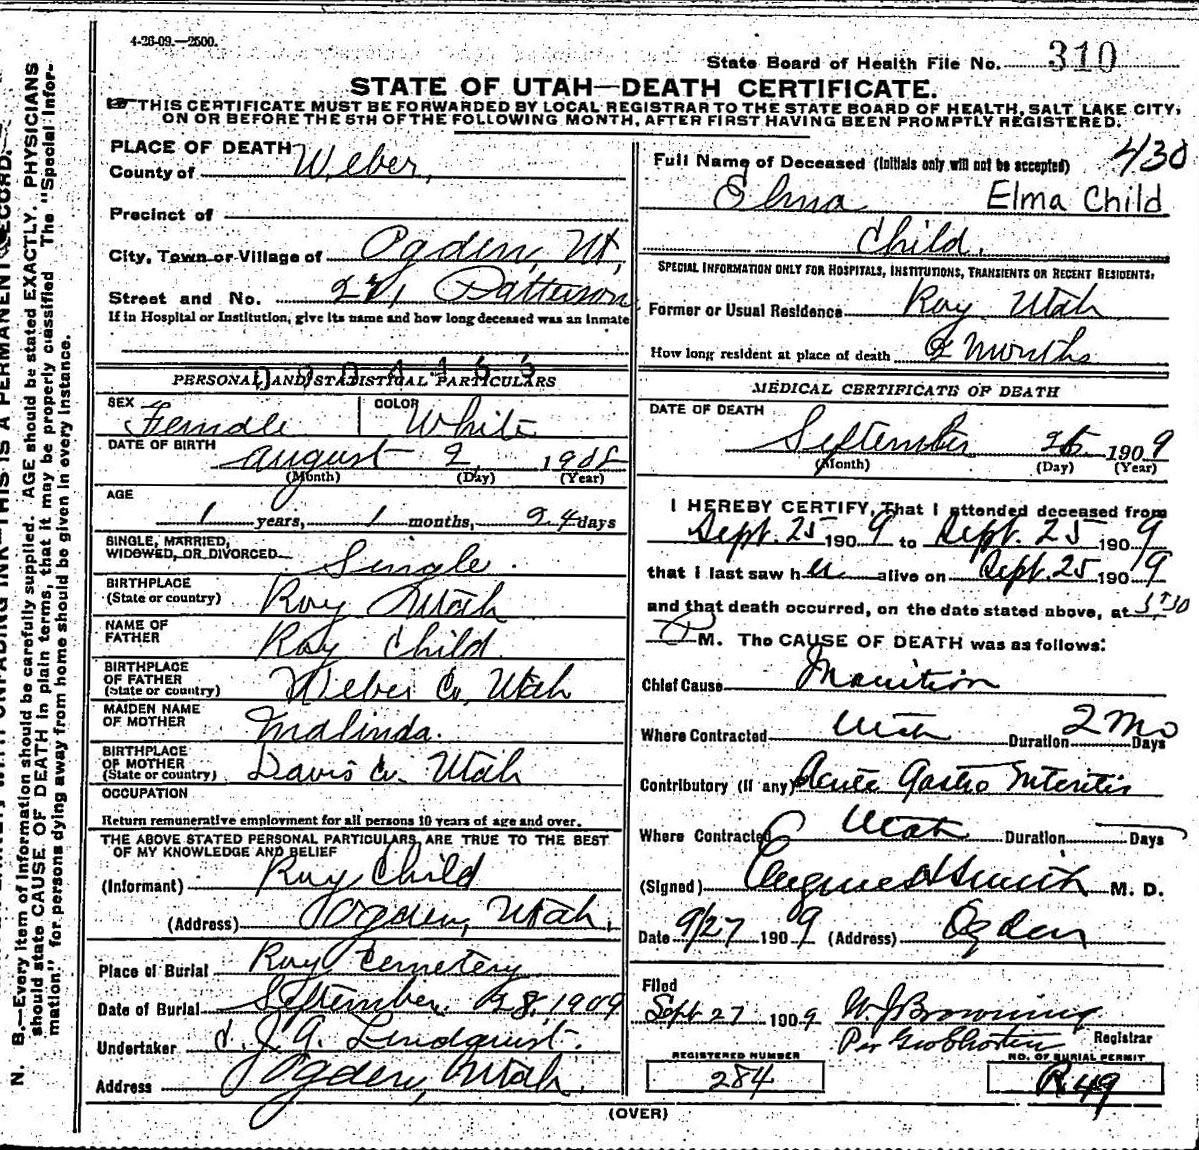 4-26-09.—2500.
State Board of Health File No. 310
STATE OF UTAH—DEATH CERTIFICATE.
THIS CERTIFICATE MUST BE FORWARDED BY LOCAL REGISTRAR TO THE STATE BOARD OF HEALTH, SALT LAKE CITY,
ON OR BEFORE THE 5TH OF THE FOLLOWING MONTH, AFTER FIRST HAVING BEEN PROMPTLY REGISTERED.
N. B.—Every item of Information should be carefully supplied. AGE should be stated EXACTLY. PHYSICIANS
should state CAUSE OF DEATH in plain terms, that it may be properly classified. The "Special Infor-
mation." for persons dying away from home should be given in every instance.
PLACE OF DEATH
County of Weber,
Precinct of
City, Town or Village of Ogden, Ut,
Street and No. Patterson
If in Hospital or Institution, give its name and how long deceased was an inmate
PERSONAL AND STATISTICAL PARTICULARS
SEX Female COLOR White
DATE OF BIRTH
August 2 1908
(Month) (Day) (Year)
AGE
1 years, 1 months, 24 days
SINGLE, MARRIED,
WIDOWED, OR DIVORCED Single.
BIRTHPLACE
(State or country) Roy Utah
NAME OF
FATHER Roy Child
BIRTHPLACE
OF FATHER
(State or country) Weber Co, Utah
MAIDEN NAME
OF MOTHER Malinda.
BIRTHPLACE
OF MOTHER
(State or country) Davis Co. Utah
OCCUPATION
Return remunerative employment for all persons 10 years of age and over.
THE ABOVE STATED PERSONAL PARTICULARS, ARE TRUE TO THE BEST
OF MY KNOWLEDGE AND BELIEF
(Informant) Roy Child
(Address) Ogden, Utah.
Place of Burial Roy Cemetery
Date of Burial September 28, 1909
Undertaker C. J. A. Lindquist.
Address Ogden, Utah.
Full Name of Deceased (Initials only will not be accepted) 430
Elma Elma Child
Child.
SPECIAL INFORMATION ONLY FOR HOSPITALS, INSTITUTIONS, TRANSIENTS OR RECENT RESIDENTS:
Former or Usual Residence Roy Utah
How long resident at place of death 2 months
MEDICAL CERTIFICATE OF DEATH
DATE OF DEATH
September 26 1909
(Month) (Day) (Year)
I HEREBY CERTIFY, That I attended deceased from
Sept. 25 1909 to Sept. 25 1909
that I last saw her alive on Sept. 25 1909
and that death occurred, on the date stated above, at
M. The CAUSE OF DEATH was as follows:
Chief Cause Inanition
Where Contracted Utah Duration 2 Mo Days
Contributory (If any) Acute Gastro Enteritis
Where Contracted Utah Duration Days
(Signed) Eugene H Smith M. D.
Date 9/27 1909 (Address) Ogden
Filed
Sept 27 1909 W. J. Browning
Per Registrar
REGISTERED NUMBER
284
NO. OF BURIAL PERMIT
R.49
(OVER)